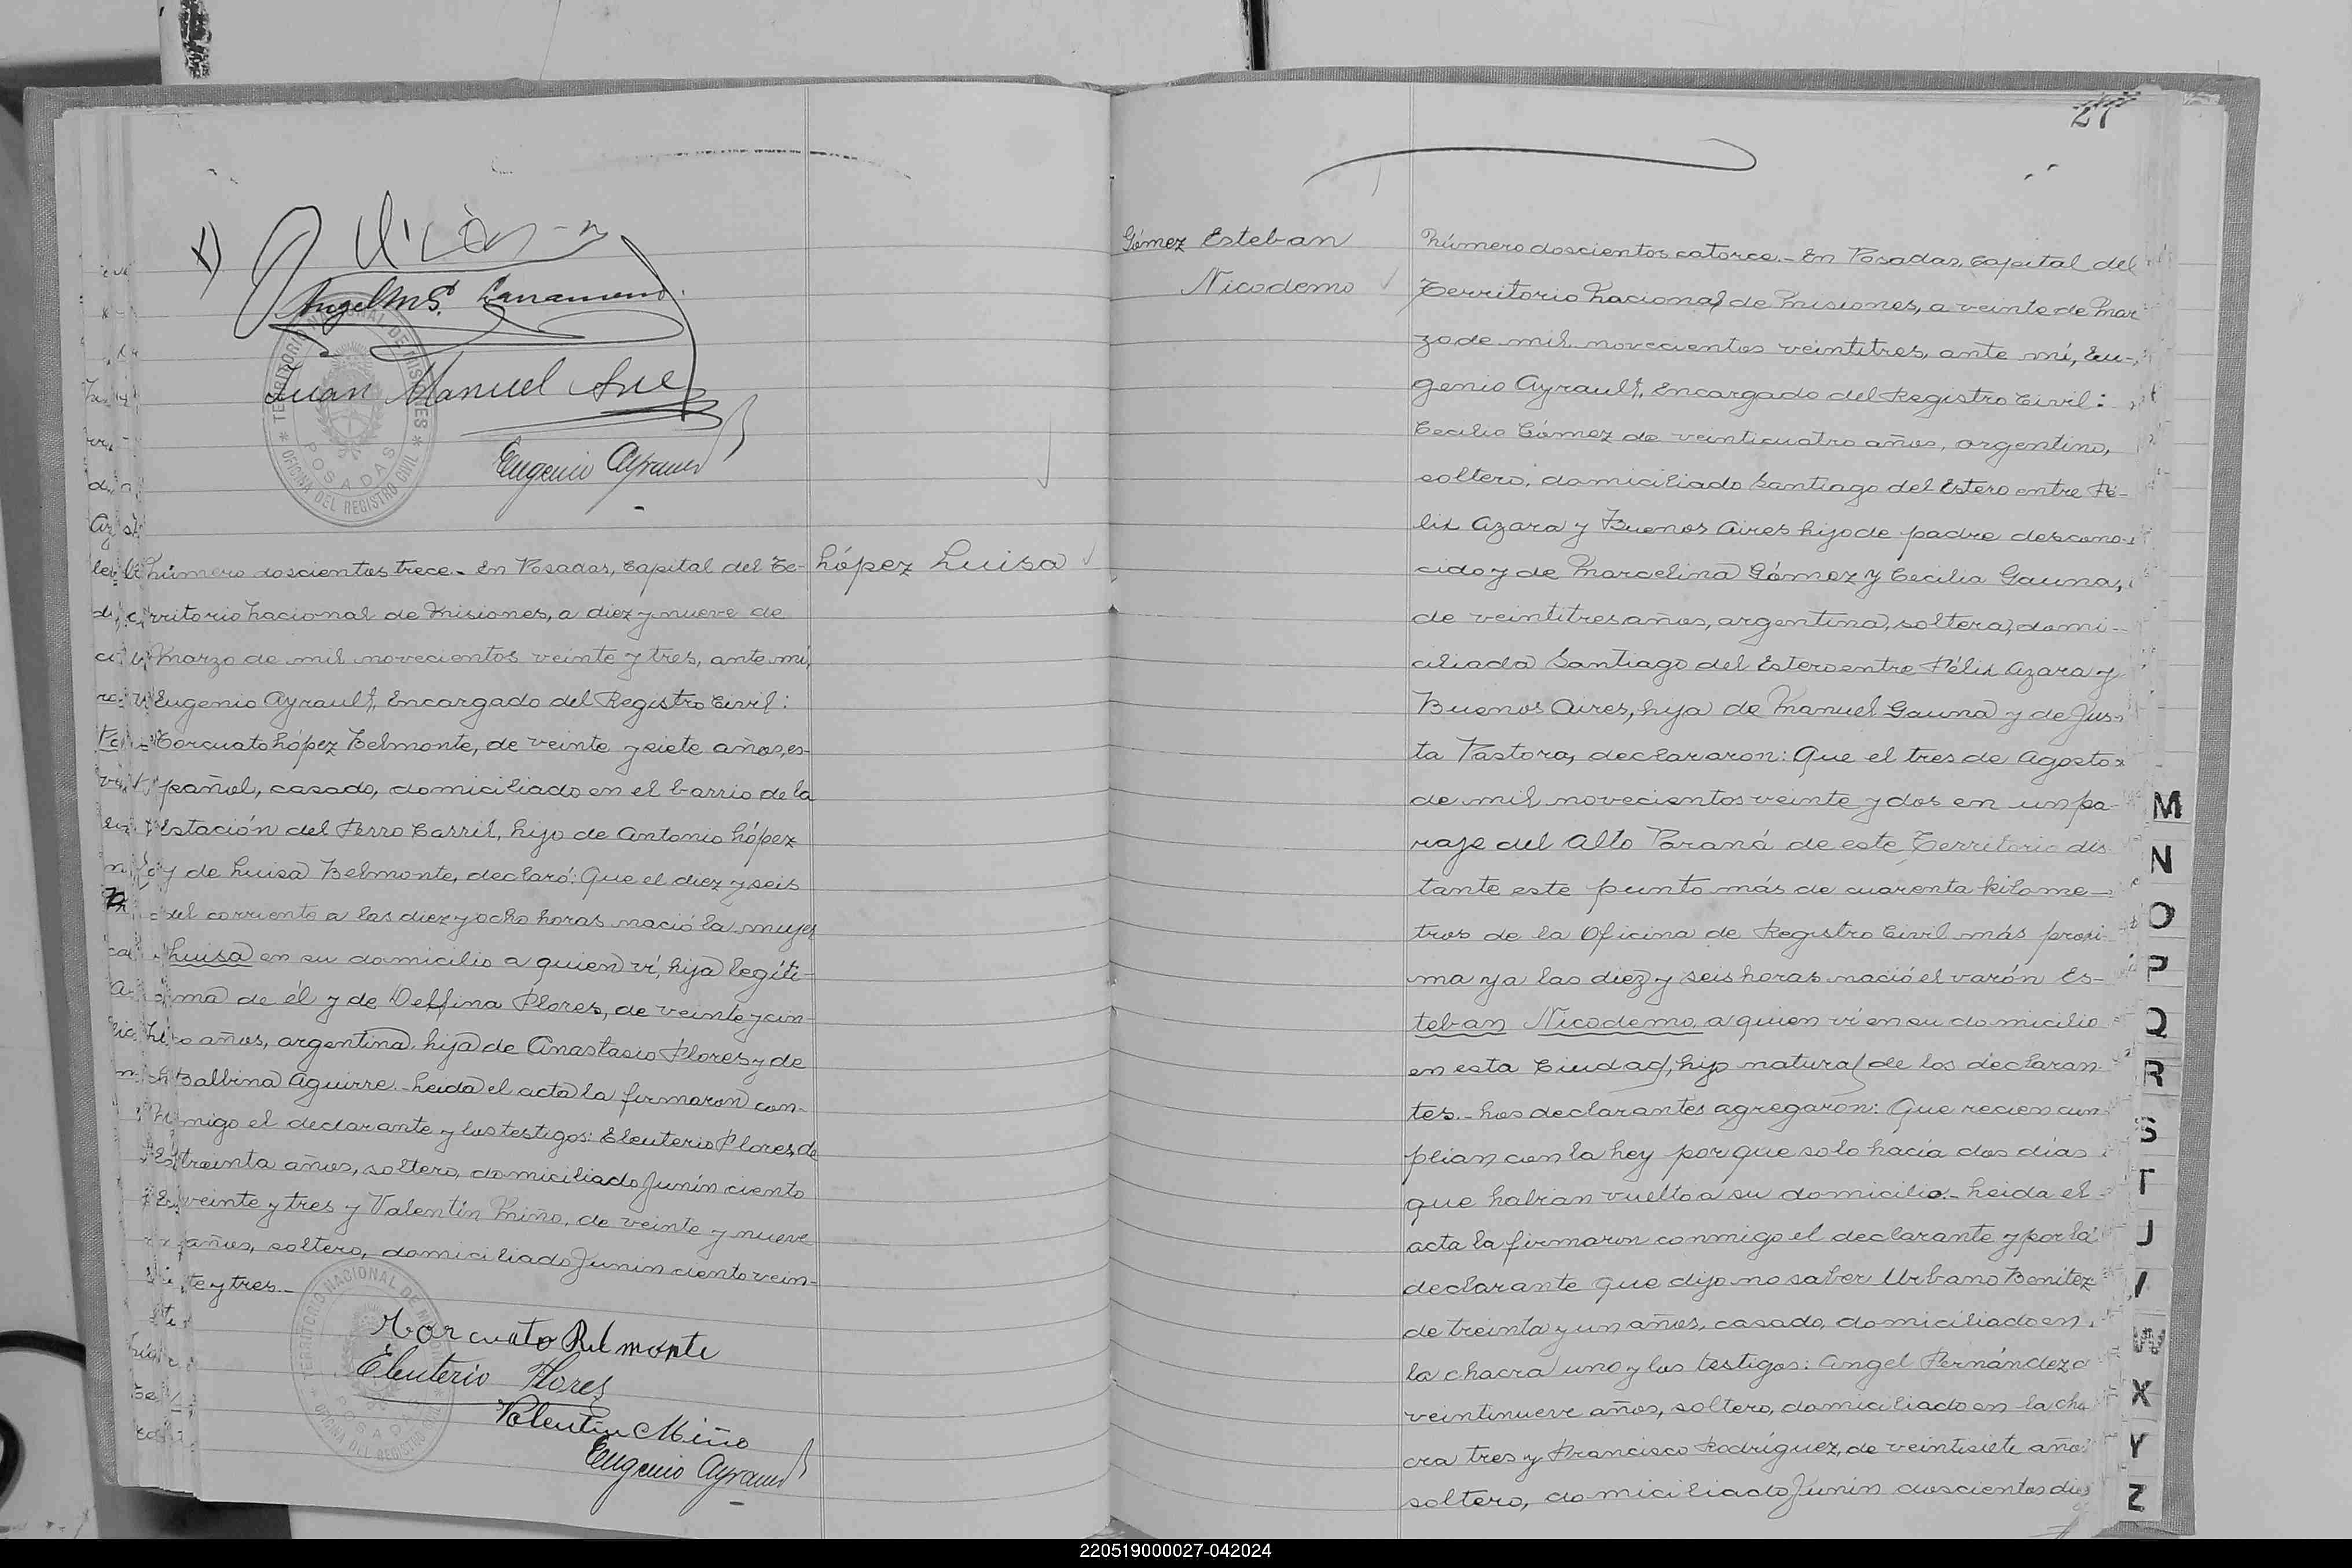 Juan Manuel
TERRITORIO NACIONAL DE MISIONES
OFICINA DEL REGISTRO CIVIL
POSADAS
Eugenio Ayrault
Número doscientos trece.- En Posadas, Capital del Te-
rritorio Nacional de Misiones, a diez y nueve de
Marzo de mil novecientos veinte y tres, ante mí,
Eugenio Ayrault, Encargado del Registro Civil:
Torcuato López Belmonte, de veinte y siete años, es-
pañol, casado, domiciliado en el barrio de la
Estación del Ferro Carril, hijo de Antonio López
y de Luisa Belmonte, declaró: Que el diez y seis
del corriente a las diez y ocho horas nació la mujer
Luisa en su domicilio a quien ví, hija legíti-
ma de él y de Delfina Flores, de veinte y cin-
co años, argentina, hija de Anastasio Flores y de
Balbina Aguirre.- Leida el acta la firmaron con-
migo el declarante y los testigos: Eleuterio Flores, de
treinta años, soltero, domiciliado Junin ciento
veinte y tres y Valentín Miño, de veinte y nueve
años, soltero, domiciliado Junin ciento vein-
te y tres.-
Torcuato Belmonte
Eleuterio Flores
Valentin Miño
Eugenio Ayrault
TERRITORIO NACIONAL DE MISIONES
OFICINA DEL REGISTRO CIVIL
POSADAS
López Luisa
27
Gómez Esteban
Nicodemo
Número doscientos catorce.- En Posadas, Capital del
Territorio Nacional de Misiones, a veinte de Mar
zo de mil novecientos veintitres, ante mí, Eu-
genio Ayrault, Encargado del Registro Civil:
Cecilio Gómez de veinticuatro años, argentino,
soltero, domiciliado Santiago del Estero entre Fé-
lix Azara y Buenos Aires hijo de padre descono-
cido y de Marcelina Gómez y Cecilia Gauna,
de veintitres años, argentina, soltera, domi-
ciliada Santiago del Estero entre Félix Azara y
Buenos Aires, hija de Manuel Gauna y de Jus-
ta Pastora, declararon: Que el tres de Agosto
de mil novecientos veinte y dos en un pa-
raje del Alto Paraná de este Territorio dis
tante este punto más de cuarenta kilome-
tros de la Oficina de Registro Civil más proxi-
ma y a las diez y seis horas nació el varón Es-
teban Nicodemo, a quien ví en su domicilio
en esta Ciudad, hijo natural de los declaran
tes.- Los declarantes agregaron: Que recien cum
plian con la Ley porque solo hacía dos días
que habian vuelto a su domicilio.- Leida el
acta la firmaron conmigo el declarante y por la
declarante que dijo no saber Urbano Benitez
de treinta y un años, casado, domiciliado en
la chacra uno y los testigos: Angel Fernández d
veintinueve años, soltero, domiciliado en la cha
cra tres y Francisco Rodríguez, de veintisiete años
soltero, domiciliado Junin doscientos diez
M
N
O
P
Q
R
S
T
U
V
W
X
Y
Z
220519000027-042024